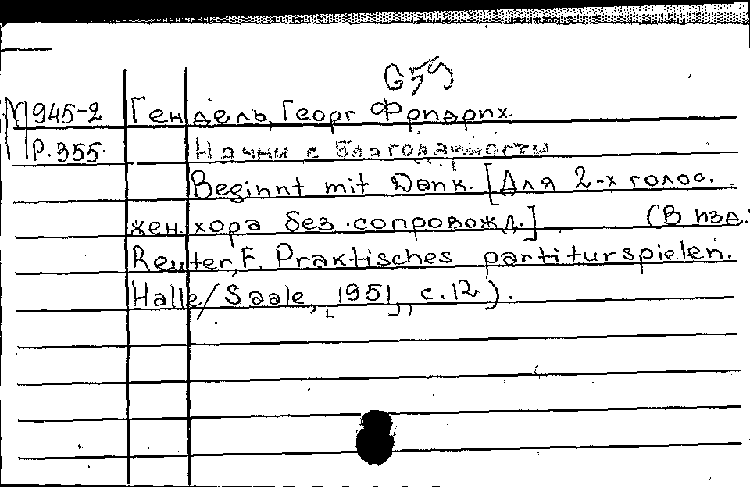 G59
М 945-2 Гендель, Георг Фридрих.
Р. 355. Начни с благодарности
Beginnt mit Dank. [Для 2-х голос.
жен. хора без сопровожд.] (В изд.:
Reuter, F. Praktisches partiturspielen.
Halle/Saale, [1951], с. 12).